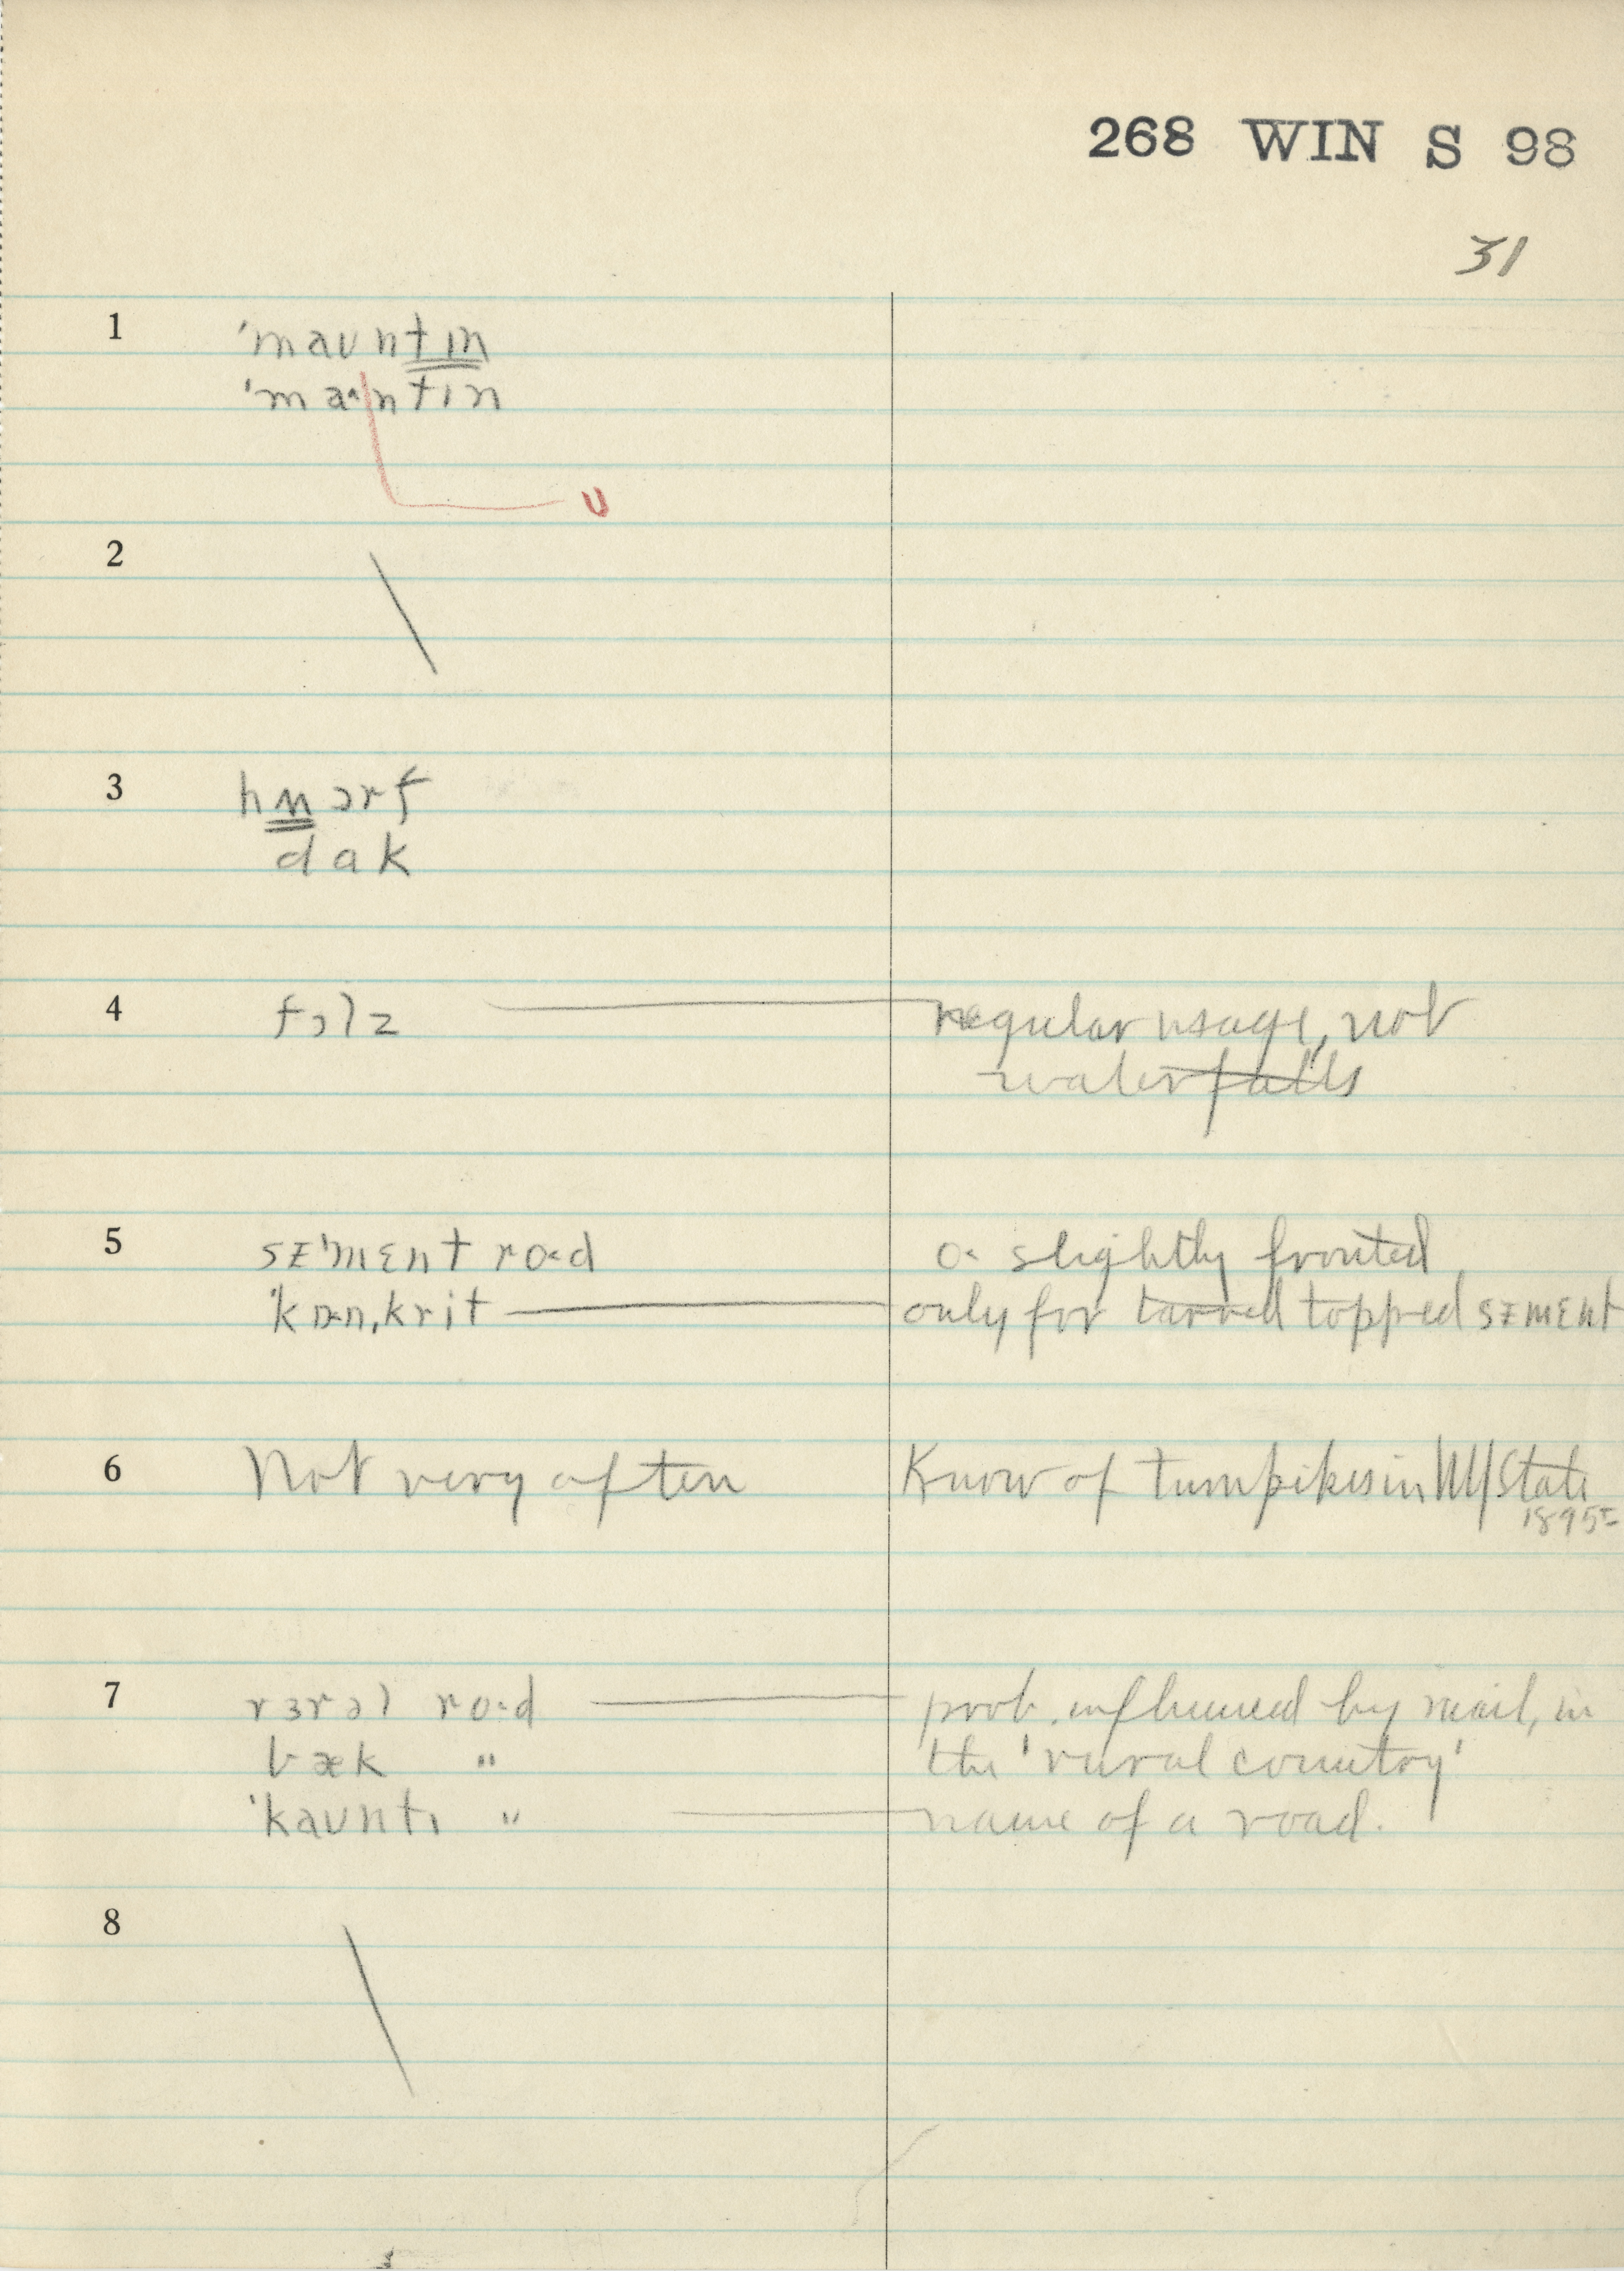 268 WIN S 98
31
1 ˈmaʊntɪn
ˈma˄ntɪn
ʊ
2
3 hʍɔrf
dak
4 fɔlz regular usage, not
waterfalls
5 sɪˈmɛnt ro˂d o˂ slightly fronted
ˈkɒ˂nˌkrit only for tarred topped sɪmɛnt
6 Not very often Know of turnpikes in NY State
1895
7 rɜrəl ro˂d prob. influenced by mail, in
bæk " the 'rural country'
ˈkaʊntɪ " name of a road.
8
3